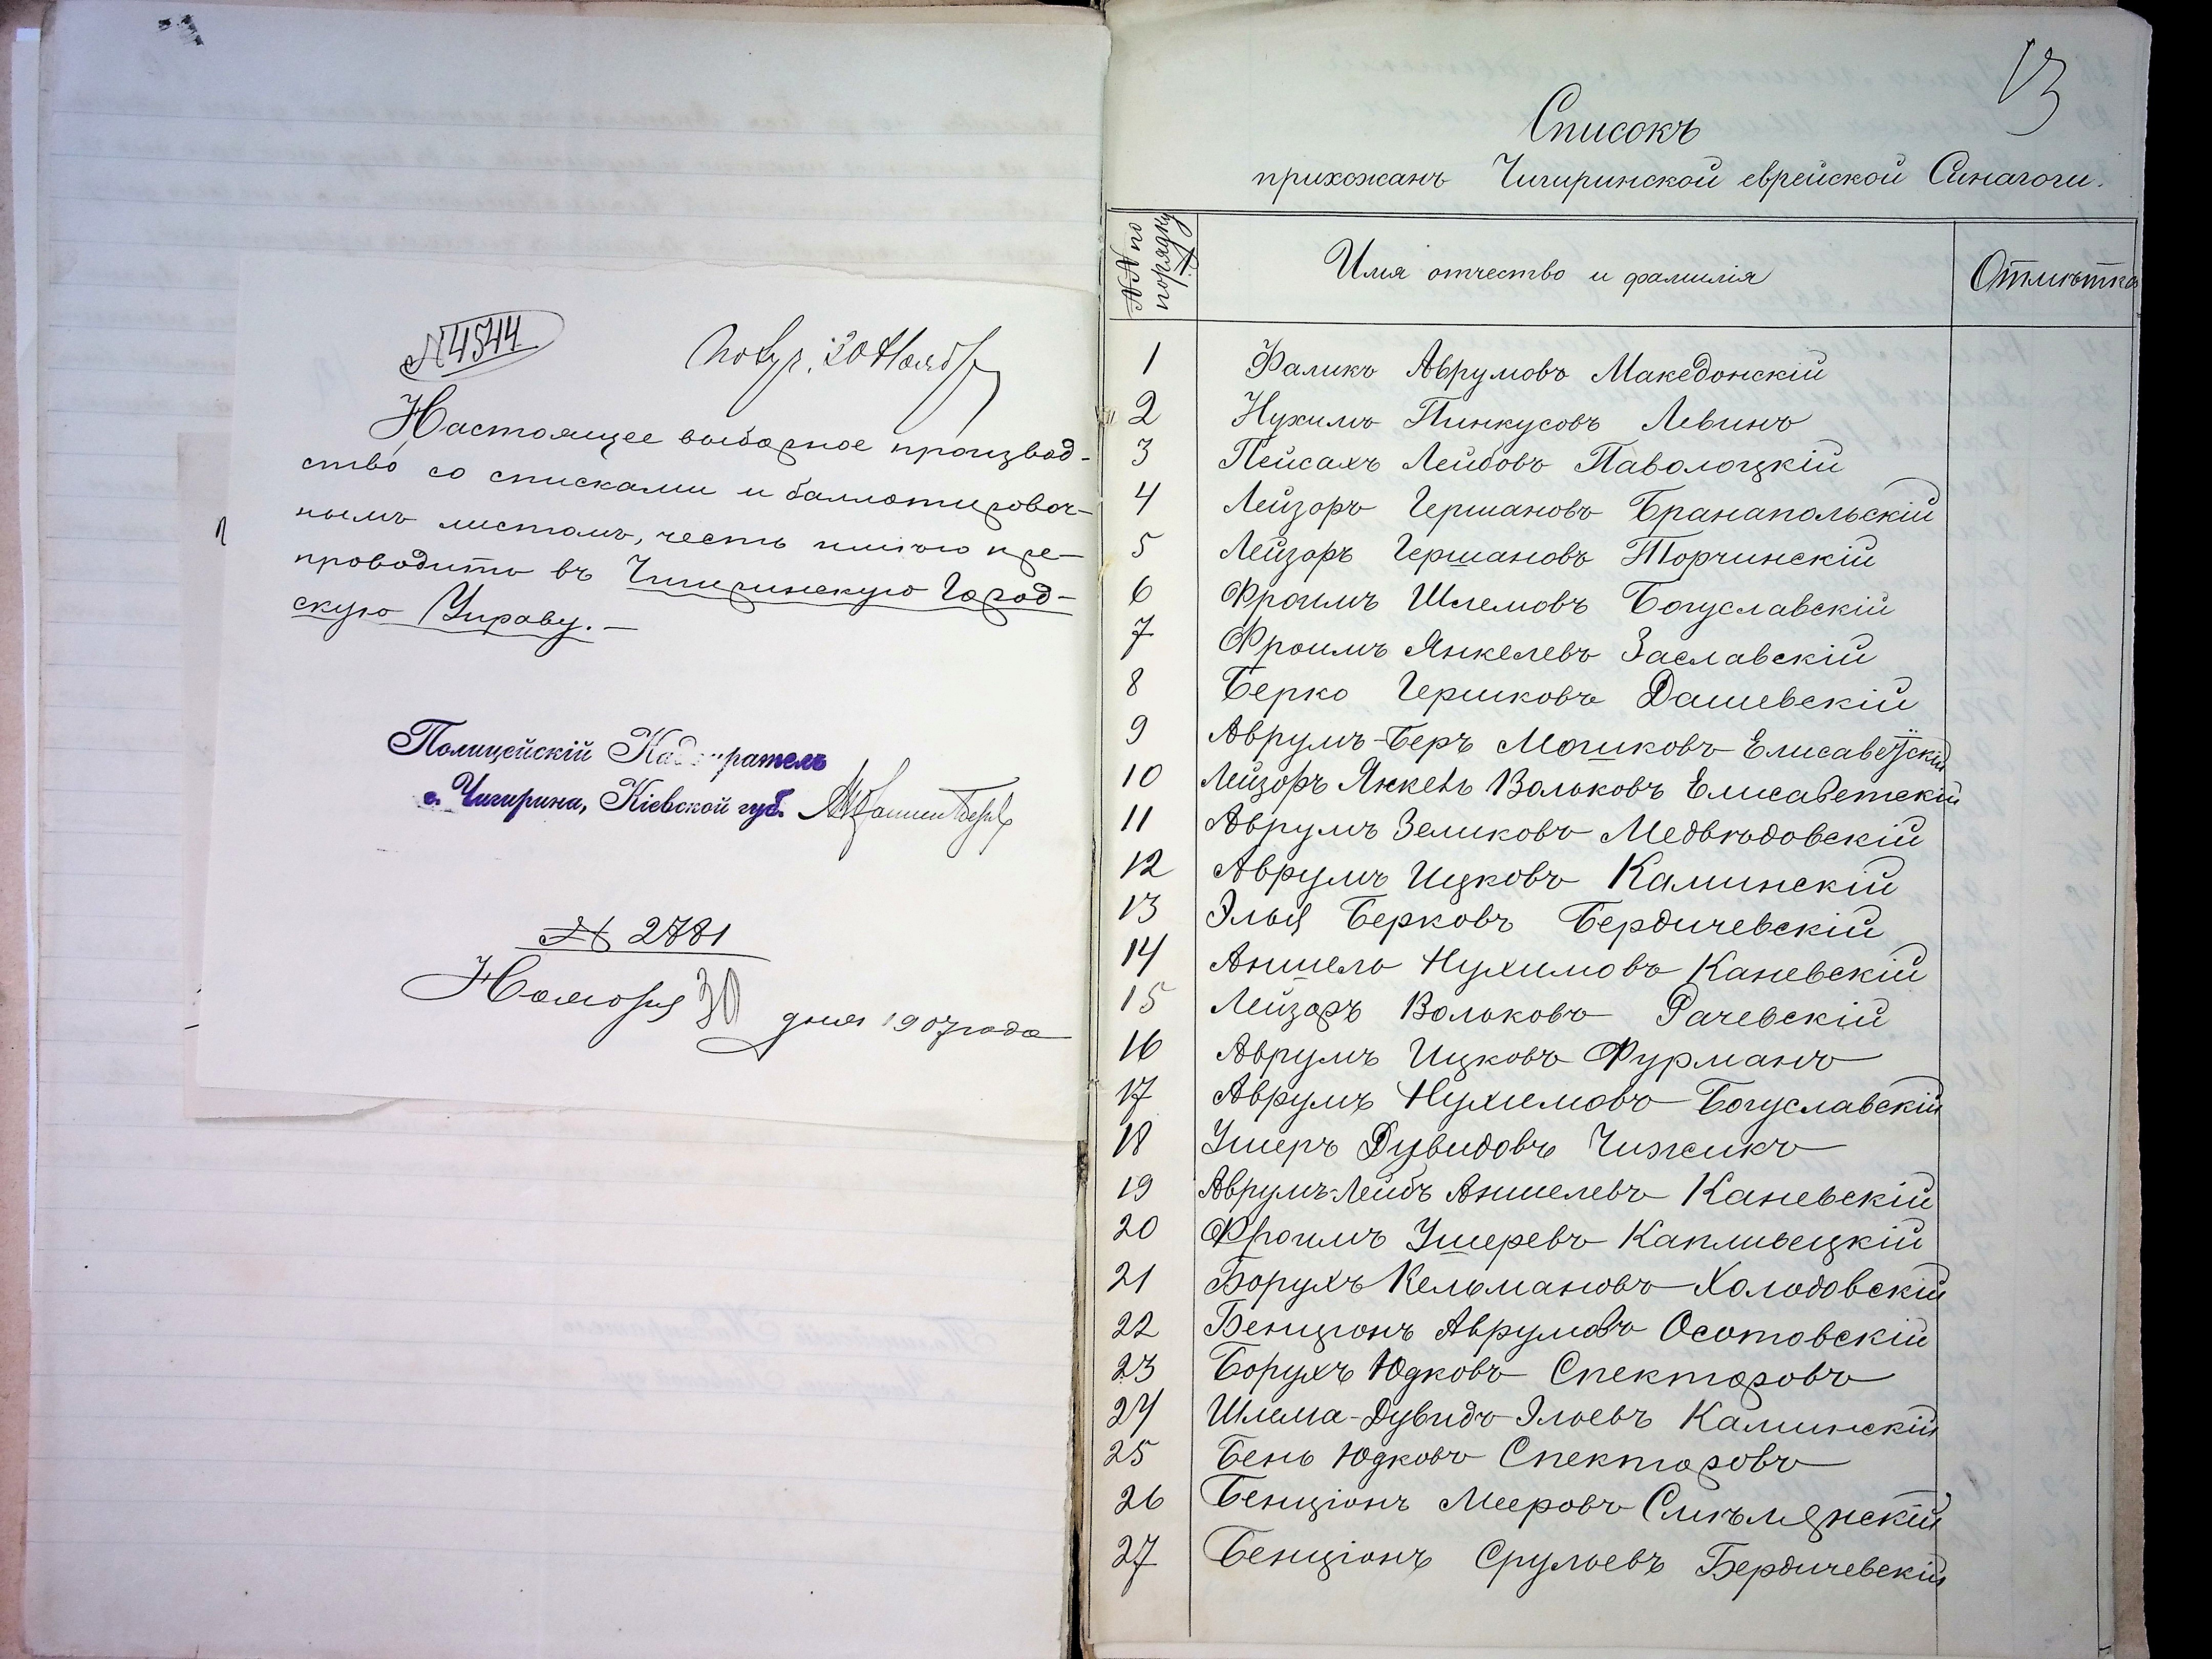 № 4544
Получ. 30 Ноябр
Настоящее выборное производ-
ство со списками и баллотировоч-
нымъ листомъ, честь имѣю пре-
проводить въ Чигиринскую Город-
скую Управу.—
Полицейскій Надзиратель
г. Чигирина, Кіевской губ.
№ 2781
Ноября 30 дня 1907 года
13
Списокъ
прихожанъ Чигиринской еврейской Синагоги.
№№ по порядку
Имя отчество и фамилія
Отмѣтка
1 Фаликъ Аврумовъ Македонскій
2 Нухимъ Пинкусовъ Левинъ
3 Пейсахъ Лейбовъ Паволоцкій
4 Лейзоръ Гершановъ Бранапольскій
5 Лейзоръ Гершановъ Торчинскій
6 Фроимъ Шлемовъ Богуславскій
7 Фроимъ Янкелевъ Заславскій
8 Берко Гершковъ Дашевскій
9 Аврумъ-Беръ Мошковъ Елисаветскій
10 Лейзоръ Янкель Вольковъ Елисаветскій
11 Аврумъ Зеликовъ Медвѣдовскій
12 Аврумъ Ицковъ Каминскій
13 Элья Берковъ Бердичевскій
14 Аншель Нухимовъ Каневскій
15 Лейзоръ Вольковъ Рачевскій
16 Аврумъ Ицковъ Фурманъ
17 Аврумъ Нухимовъ Богуславскій
18 Ушеръ Дувидовъ Чижикъ
19 Аврумъ-Лейбъ Аншелевъ Каневскій
20 Фроимъ Ушеревъ Капливецкій
21 Борухъ Кельмановъ Холодовскій
22 Бенціонъ Аврумовъ Осотовскій
23 Борухъ Юдковъ Спекторовъ
24 Шлема-Дувидъ Эльевъ Каминскій
25 Бень Юдковъ Спекторовъ
26 Бенціонъ Мееровъ Смѣлянскій
27 Бенціонъ Срульевъ Бердичевскій